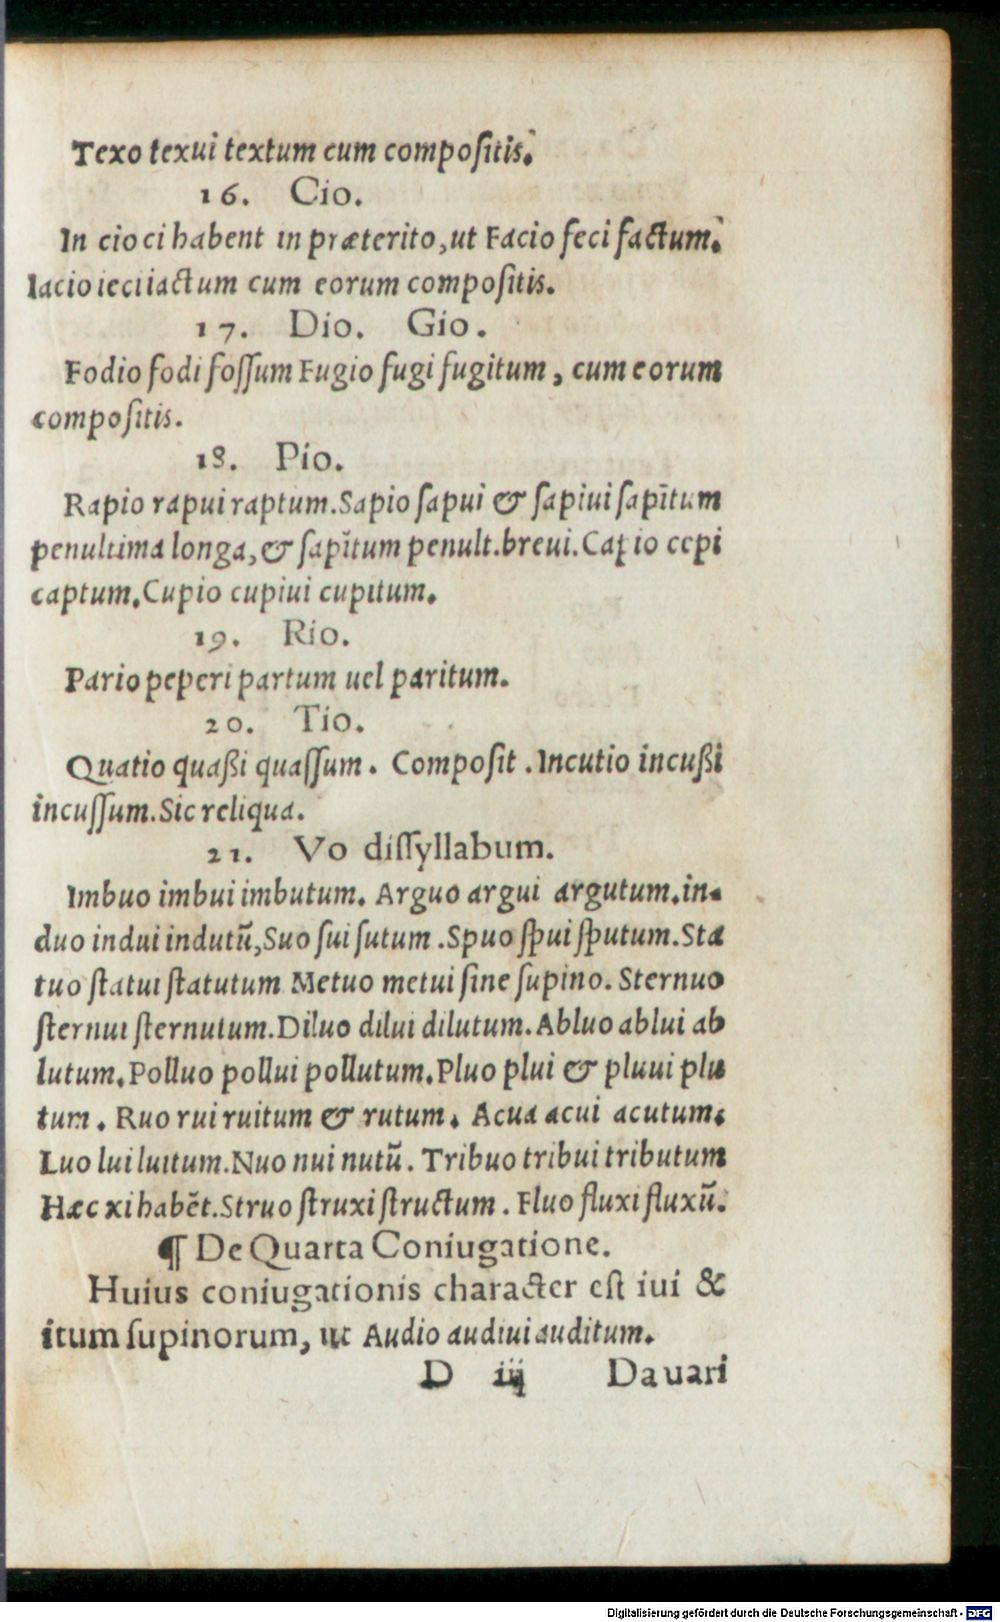 Texo texui textum cum compositis.
16. Cio.
In cio ci habent in præterito, ut Facio feci factum.
Iacio ieci iactum cum eorum compositis.
17. Dio. Gio.
Fodio fodi foſſum Fugio fugi fugitum, cum eorum
compoſitis.
18. Pio.
Rapio rapui raptum. Sapio ſapui & ſapiui ſapītum
penultima longa, & ſapĭtum penult. breui. Capio cepi
captum. Cupio cupiui cupitum.
19. Rio.
Pario peperi partum uel paritum.
20. Tio.
Quatio quaßi quaſſum. Compoſit. Incutio incußi
incuſſum. Sic reliqua.
21. Vo diſſyllabum.
Imbuo imbui imbutum. Arguo argui argutum. in-
duo indui indutū, Suo ſui ſutum. Spuo ſpui ſputum. Sta
tuo ſtatui ſtatutum Metuo metui ſine ſupino. Sternuo
ſternui ſternutum. Diluo dilui dilutum. Abluo ablui ab
lutum. Polluo pollui pollutum. Pluo plui & pluui plu
tum. Ruo rui ruitum & rutum. Acua acui acutum.
Luo lui luitum. Nuo nui nutū. Tribuo tribui tributum
Hæc xi habēt. Struo ſtruxi ſtructum. Fluo fluxi fluxū.
¶ De Quarta Coniugatione.
Huius coniugationis character eſt iui &
itum ſupinorum, ut Audio audiui auditum.
D iij Dauari
Digitalisierung gefördert durch die Deutsche Forschungsgemeinschaft - DFG